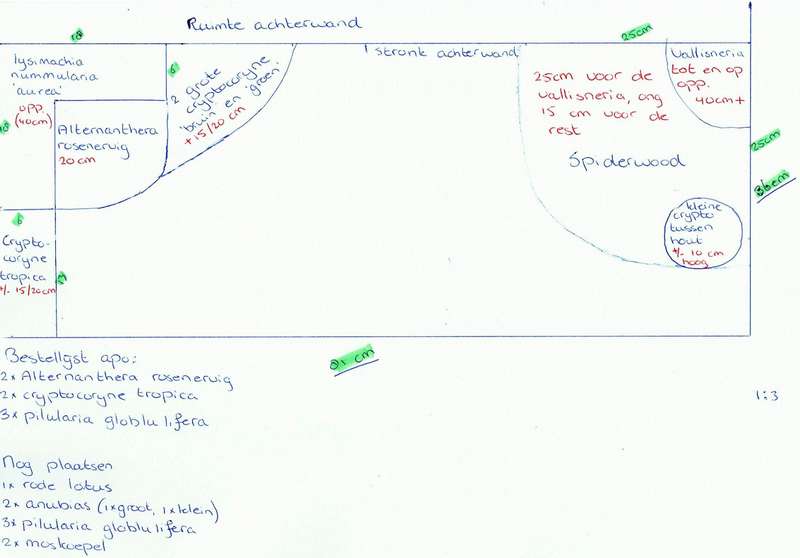 Ruimte achterwand
18
25cm
lysimachia
nummularia
'aurea'
opp.
(40cm)
Alternanthera
rosenervig
20cm
6
2 grote
cryptocoryne
'bruin' en 'groen'
+15/20 cm
1 stronk achterwand
25cm voor de
vallisneria, ong
15 cm voor de
rest
Vallisneria
tot en op
opp.
40cm+
25cm
36cm
Spiderwood
kleine
crypto
tussen
hout
+/- 10 cm
hoog
6
Crypto-
coryne
tropica
+/- 15/20cm
91 cm
Bestellyst apo:
2x Alternanthera rosenervig
2x cryptocoryne tropica
3x pilularia globlulifera
1:3
Nog plaatsen
1x rode lotus
2x anubias (1xgroot, 1xklein)
3x pilularia globlulifera
2x moskoepel